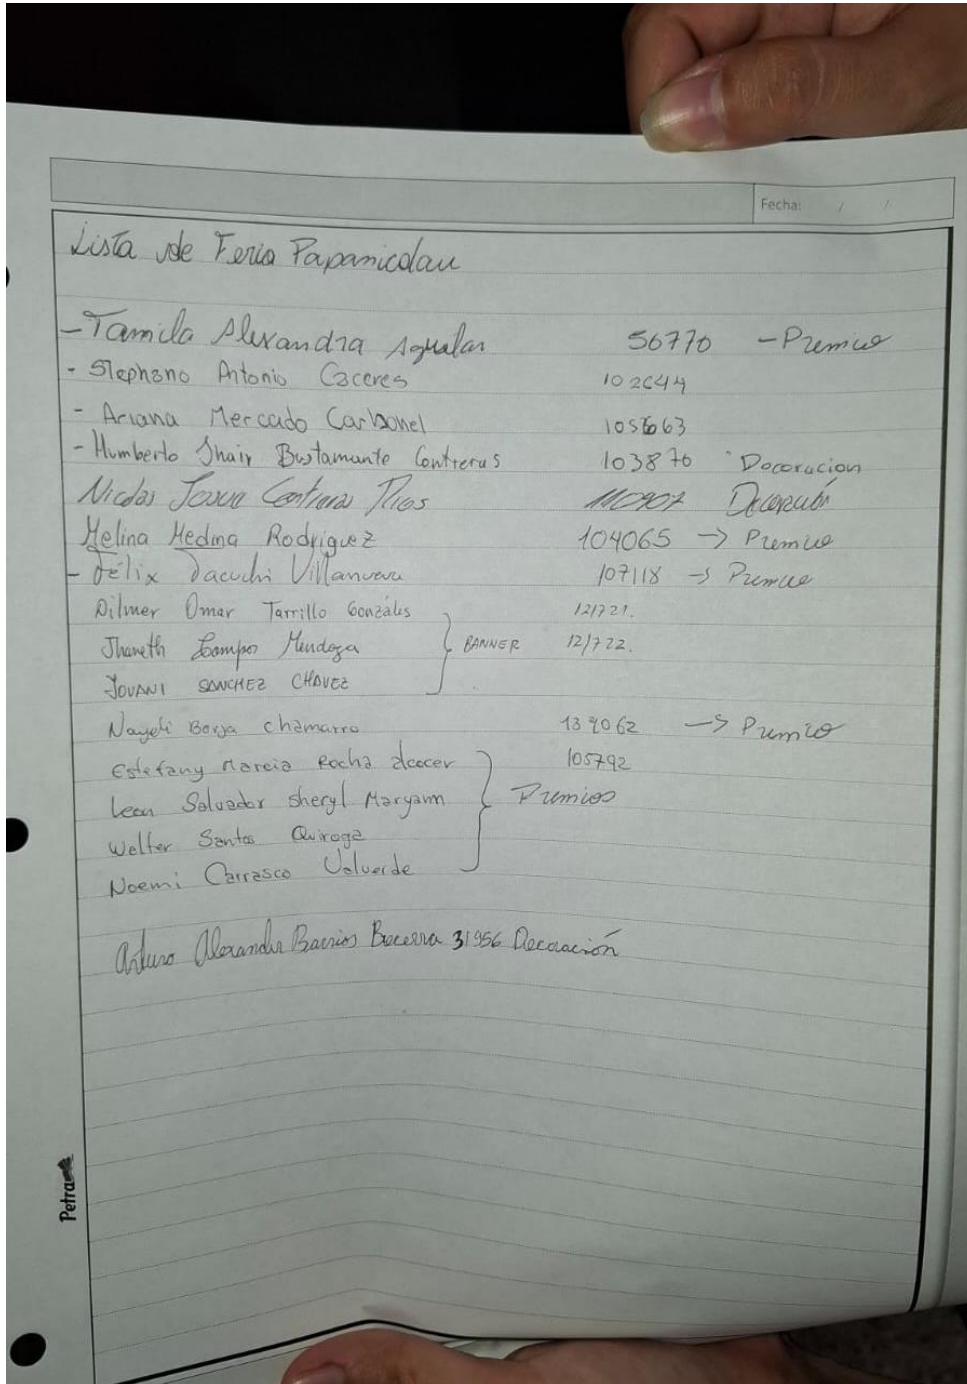 Fecha: / /
Lista de Feria Papanicolau
- Tamila Alexandra Aguilar 56770 - Premios
- Stephano Antonio Caceres 102644
- Ariana Mercado Carbonel 63
- Humberto Jhair Bustamante Contreras 103870 Docoracion
Nicolas Contreras Rios 110907 Decoración
Melina Medina Rodriguez 104065 -> Premios
- Félix Tacuchi Villanueva 107118 -> Premios
Dilmer Omar Tarrillo Gonzáles 121721.
Jhaneth Campos Mendoza } BANNER 121722.
JOVANI SANCHEZ CHAVEZ
Nayeli Borja Chamorro -> Premios
Estefany Marcia Rocha alcocer 105792
Leon Salvador Sheryl Maryann } Premios
Walter Santos Quiroga
Noemi Carrasco Valverde
Arturo Alexander Barrios Becerra 31956 Decoración
Petra